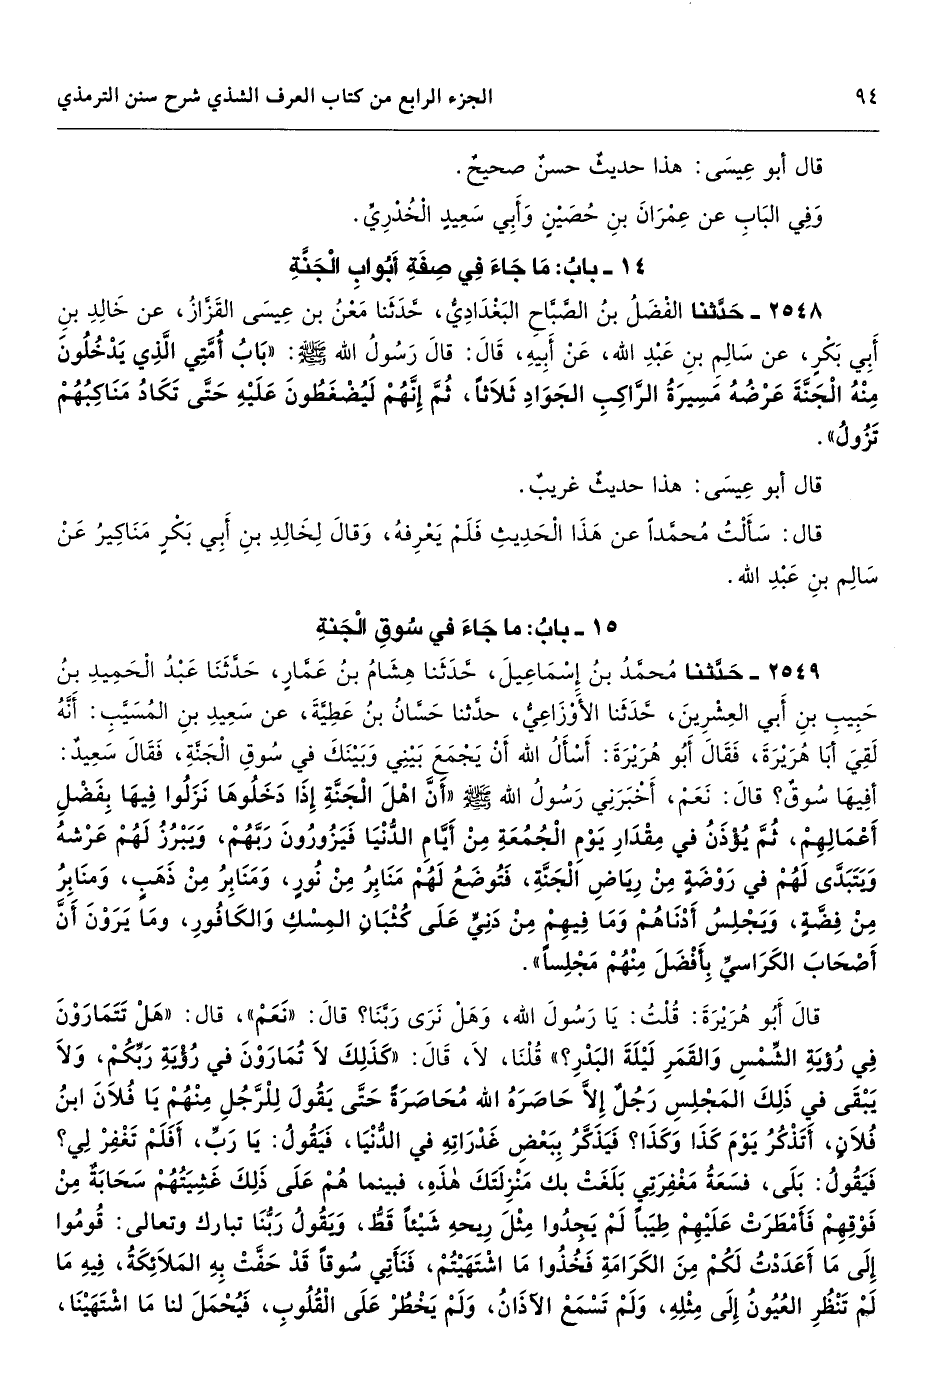 ٩٤ الجزء الرابع من كتاب العرف الشذي شرح سنن الترمذي
قال أبو عِيسَى: هذا حديثٌ حسنٌ صحيحٌ.
وَفِي البَابِ عن عِمْرَانَ بنِ حُصَيْنٍ وَأَبِي سَعِيدٍ الْخُدْرِيِّ.
١٤ ـ بابُ: مَا جَاءَ فِي صِفَةِ أَبْوابِ الْجَنَّةِ
٢٥٤٨ ـ حَدَّثنا الفَضْلُ بنُ الصَّبَّاحِ البَغْدَادِيُّ، حَّدَثَنا مَعْنُ بن عِيسَى القَزَّازُ، عن خَالِدِ بنِ
أَبي بَكْرٍ، عن سَالِمِ بنِ عَبْدِ الله، عَنْ أَبِيهِ، قَالَ: قالَ رَسُولُ الله ﷺ: «بَابُ أُمَّتِي الَّذِي يَدْخُلُونَ
مِنْهُ الْجَنَّةَ عَرْضُهُ مَسِيرَةُ الرَّاكِبِ الجَوَادِ ثَلَاثاً، ثُمَّ إنَّهُمْ لَيُضْغَطُونَ عَلَيْهِ حَتَّى تَكَادُ مَنَاكِبُهُمْ
تَزُولُ».
قال أبو عِيسَى: هذا حديثٌ غريبٌ.
قال: سَأَلْتُ مُحمَّداً عن هَذَا الْحَدِيثِ فَلَمْ يَعْرِفهُ، وَقالَ لِخَالِدِ بنِ أَبِي بَكْرٍ مَنَاكِيرُ عَنْ
سَالِمِ بنِ عَبْدِ الله.
١٥ ـ بابُ: ما جَاءَ في سُوقِ الْجَنةِ
٢٥٤٩ ـ حَدَّثنا مُحمَّدُ بنُ إِسْمَاعِيلَ، حَّدَثَنا هِشَامُ بنُ عَمَّارٍ، حَدَّثَنَا عَبْدُ الْحَمِيدِ بنُ
حَبِيبِ بنِ أبي العِشْرِينَ، حَّدَثَنا الأَوْزَاعِيُّ، حدَّثنا حَسَّانُ بنُ عَطِيَّةَ، عن سَعِيدِ بنِ المُسَيَّبِ: أَنَّهُ
لَقِيَ أبَا هُرَيْرَةَ، فَقَالَ أَبُو هُرَيْرَةَ: أَسْأَلُ الله أَنْ يَجْمَعَ بَيْنِي وَبَيْنَكَ في سُوقِ الْجَنَّةِ، فَقَالَ سَعِيدٌ:
أفِيهَا سُوقٌ؟ قالَ: نَعَمْ، أَخْبَرَنِي رَسُولُ الله ﷺ «أَنَّ اهْلَ الْجَنَّةِ إذَا دَخَلُوهَا نَزَلُوا فِيهَا بِفَضْلِ
أَعْمَالِهِمْ، ثُمَّ يُؤْذَنُ في مِقْدَارِ يَوْمِ الْجُمُعَةِ مِنْ أَيَّامِ الدُّنْيَا فَيَزُورُونَ رَبَّهُمْ، وَيَبْرُزُ لَهُمْ عَرْشهُ
وَيَتَبَدَّى لَهُمْ في رَوْضَةٍ مِنْ رِيَاضِ الْجَنَّةِ، فَتُوضَعُ لَهُمْ مَنَابِرُ مِنْ نُورٍ، وَمَنَابرُ مِنْ ذَهَبٍ، وَمنَابِرُ
مِنْ فِضَّةٍ، وَيَجْلِسُ أَدْنَاهُمْ وَمَا فِيهِمْ مِنْ دَنِيِّ عَلَى كُثْبَانِ المِسْكِ وَالكَافُورِ، وما يَرَوْنَ أَنَّ
أصْحَابَ الكَرَاسيِّ بِأَفْضَلَ مِنْهُمْ مَجْلِساً».
قالَ أَبُو هُرَيْرَةَ: قُلْتُ: يَا رَسُولَ الله، وَهَلْ نَرَى رَبَّنَا؟ قالَ: «نَعَمْ»، قال: «هَلْ تَتَمَارَوْنَ
فِي رُؤْيَةِ الشَّمْسِ وَالقَمَرِ لَيْلَةَ البَدْرِ؟» قُلْنَا، لَا، قَالَ: «كَذَلِكَ لاَ تُمَارَوْنَ في رُؤْيَةِ رَبِّكُمْ، وَلاَ
يَبْقَى في ذَلِكَ المَجْلِسِ رَجُلٌ إلاَّ حَاصَرَهُ الله مُحَاصَرَةً حَتَّى يَقُولَ لِلْرَّجُلِ مِنْهُمْ يَا فُلَانَ ابنُ
فُلاَنٍ، أَتَذْكُرُ يَوْمَ كَذَا وَكَذَا؟ فَيَذَكَّرُ بِبَعْضِ غَدْرَاتِهِ في الدُّنْيَا، فَيَقُولُ: يا رَبِّ، أَفَلَمْ تَغْفِرْ لِي؟
فَيَقُولُ: بَلَى، فسَعَةُ مَغْفِرَتِي بَلَغَتْ بك مَنْزِلَتَكَ هٰذِهِ، فبينما هُمْ عَلَى ذَلِكَ غَشِيَتْهُمْ سَحَابَةٌ مِنْ
فَوْقِهِمْ فَأَمْطَرَتْ عَلَيْهِمْ طِيَباً لَمْ يَجِدُوا مِثْلَ رِيحهِ شَيْئاً قَطُّ، وَيَقُولُ رَبُّنَا تبارك وتعالى: قُومُوا
إِلَى مَا أَعَدَدْتُ لَكُمْ مِنَ الكَرَامَةِ فَخُذُوا مَا اشْتَهَيْتُمْ، فَنَأتِي سُوقاً قَدْ حَفَّتْ بِهِ المَلَائِكَةُ، فِيهِ مَا
لَمْ تَنْظُرِ العُيُونُ إِلَى مِثْلِهِ، وَلَمْ تَسْمَعْ الآذَانُ، وَلَمْ يَخْطُرْ عَلَى الْقُلُوبِ، فَيُحْمَلَ لنا مَا اشْتَهَيْنَا،